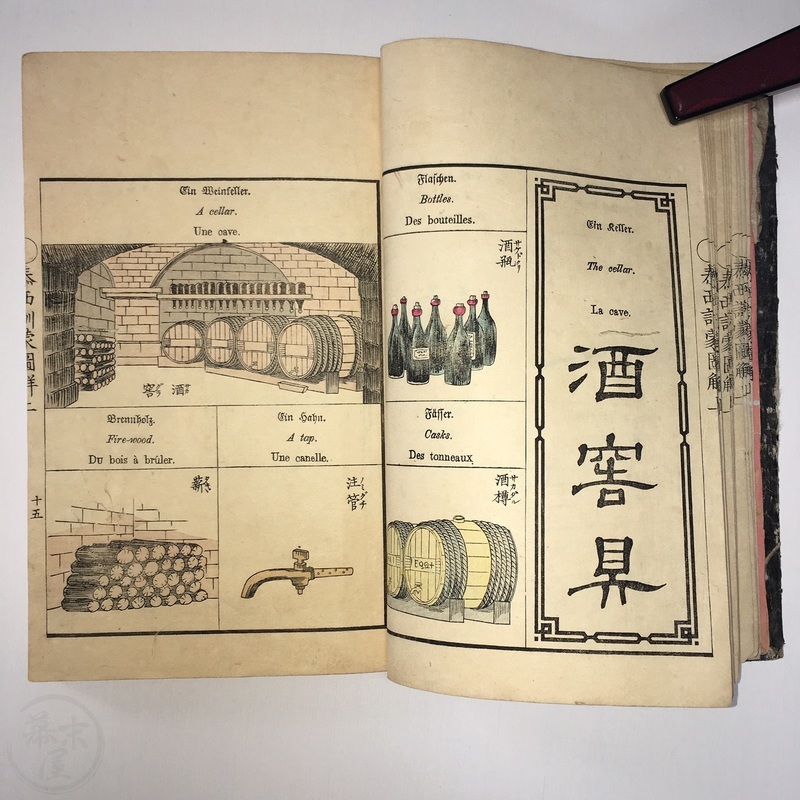 Ein Keller.
The cellar.
La cave.
酒
窖
具
Flaschen.
Bottles.
Des bouteilles.
酒瓶
Fässer.
Casks.
Des tonneaux
酒樽
サカダル
Eqa+
Ein Weinkeller.
A cellar.
Une cave.
酒窖
Ein Hahn.
A tap.
Une canelle.
注管
ノミグチ
Brennholz.
Fire-wood.
Du bois à brûler.
薪
十五